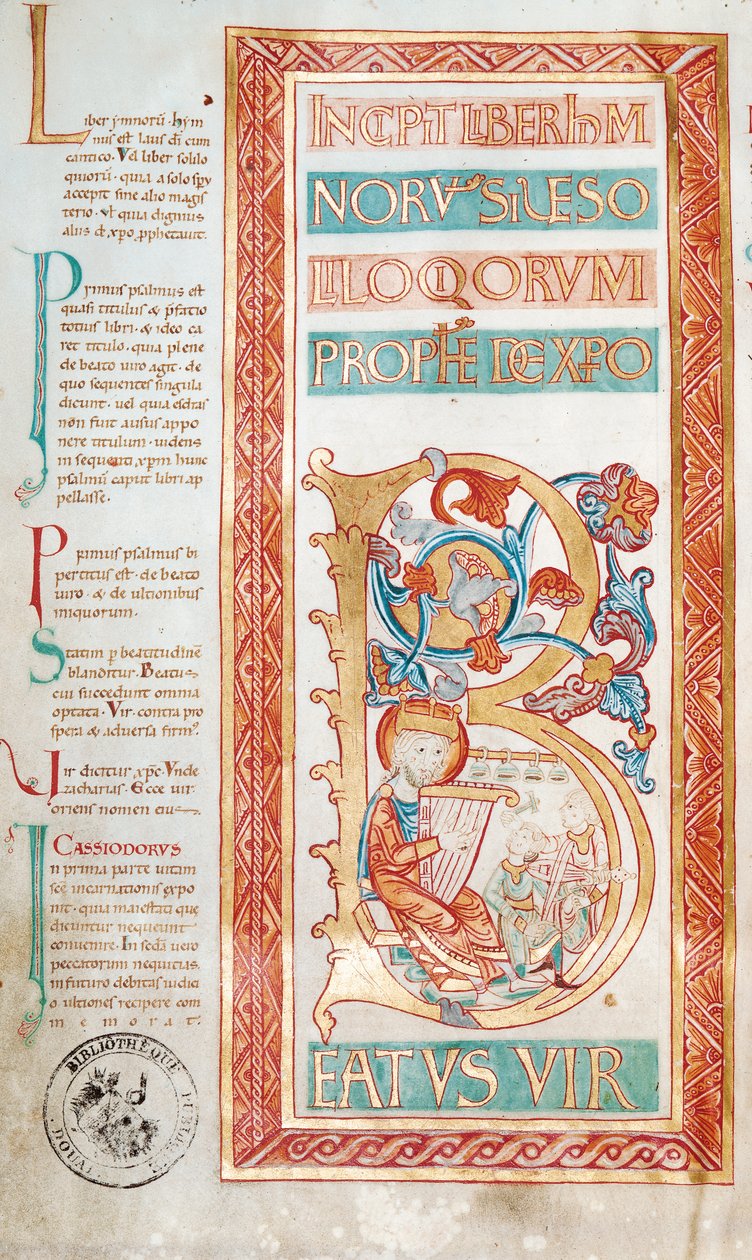 Liber ẏmnorū. hẏm
nus est laus dī cum
cantico. Vel liber solilo
quiorū. quia a solo spū
accepit sine alio magis
terio. vl quia dignius
aliis de xp̄o p̄phetauit.
Primus psalmus est
quasi titulus & p̄fatio
totius libri. & ideo ca
ret titulo. quia plene
de beato uiro agit. de
quo sequentes singula
dicunt. uel quia esdras
non fuit ausus appo
nere titulum. uidens
in sequenti xp̄m hunc
psalmū caput libri ap
pellasse.
Primus psalmus bi
pertitus est. de beato
uiro. & de ultionibus
iniquorum.
Statim p beatitudinē
blanditur. Beatus
cui succedunt omnia
optata. Vir. contra pro
spera & aduersa firm⁹.
Vir dicitur xp̄c. Vnde
zacharias. Ecce uir
oriens nomen eius
CASSIODORVS
In prima parte uitam
scē incarnationis expo
nit. quia maiestati que
dicuntur nequeunt
conuenire. In scdā uero
peccatorum nequitias.
in futuro debitas iudici
o ultiones recipere com
memorat.
INCIPIT LIBER hȲM
NORVM SIVE SO
LILOQIORVM
PROPHETE DE XP̄O
BEATVS VIR
BIBLIOTHÈQUE PUBLIQUE
DOUAI